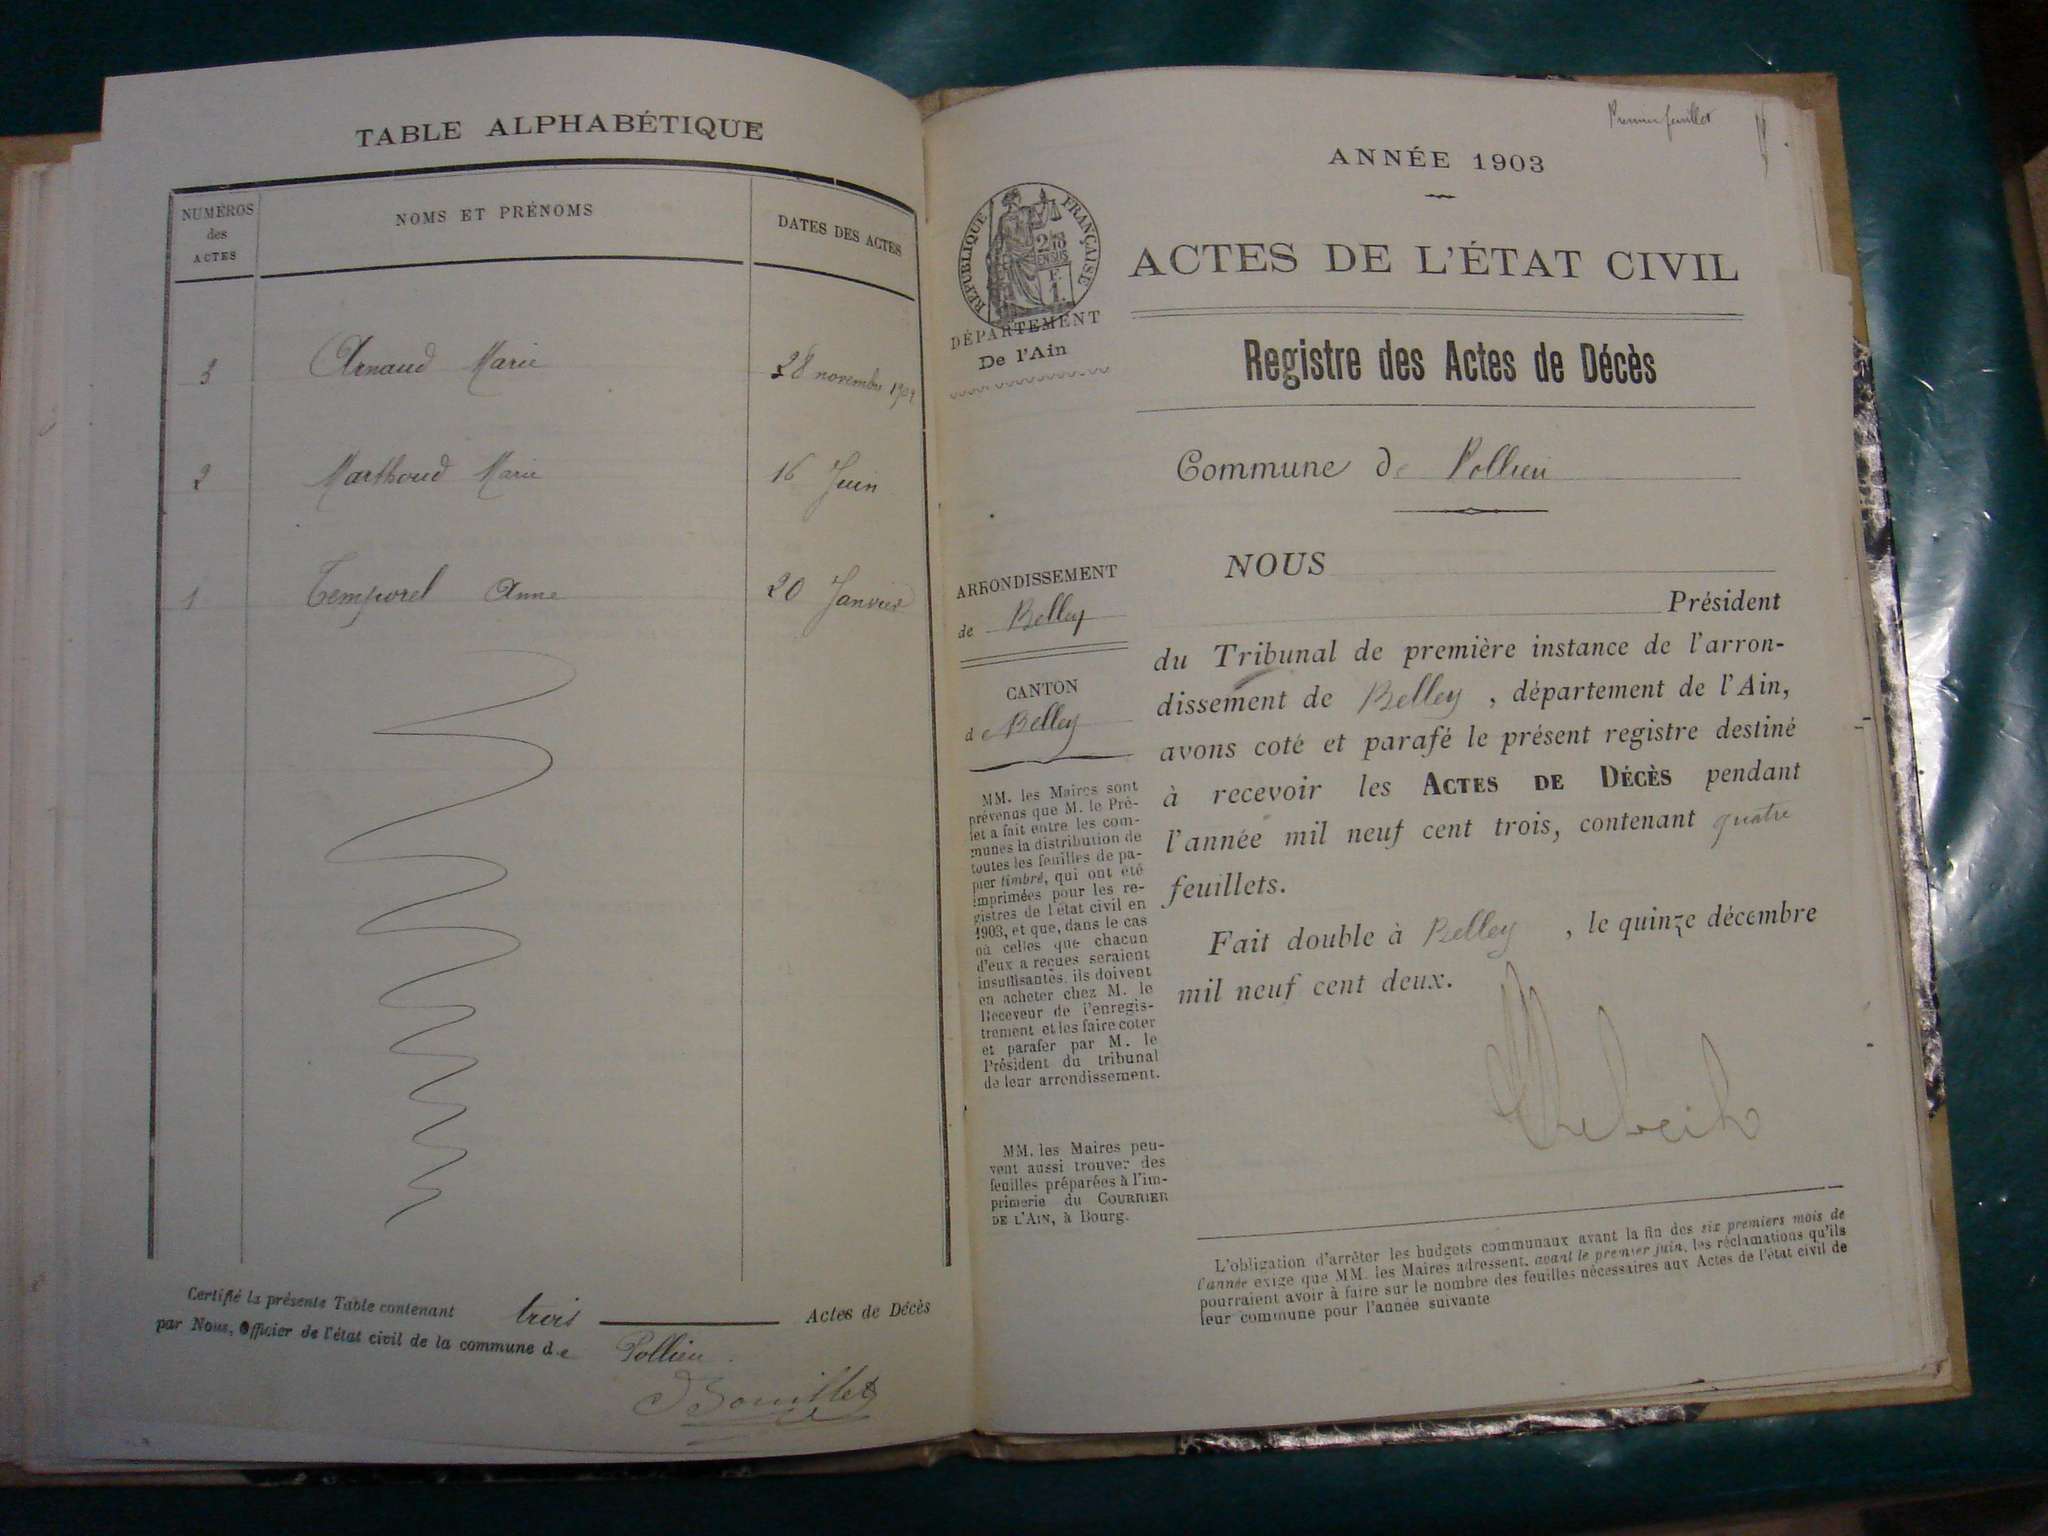 TABLE ALPHABÉTIQUE
NUMÉROS
des
ACTES
NOMS ET PRÉNOMS
DATES DES ACTES
3 Arnaud Marie 28 novembre
2 Marthoud Marie 16 Juin
1 Temporel Anne 20 Janvier
Certifié la présente Table contenant trois Actes de Décès
par Nous, Officier de l'état civil de la commune de Pollieu
Bouillet
Premier feuillet
ANNÉE 1903
ACTES DE L'ÉTAT CIVIL
RÉPUBLIQUE FRANÇAISE
DÉPARTEMENT
De l'Ain
Registre des Actes de Décès
Commune de Pollieu
ARRONDISSEMENT
de Belley
CANTON
de Belley
MM. les Maires sont
prévenus que M. le Pré-
fet a fait entre les com-
munes la distribution de
toutes les feuilles de pa-
pier timbré, qui ont été
imprimées pour les re-
gistres de l'état civil en
1903, et que, dans le cas
où celles que chacun
d'eux a reçues seraient
insuffisantes, ils doivent
en acheter chez M. le
Receveur de l'enregis-
trement et les faire coter
et parafer par M. le
Président du tribunal
de leur arrondissement.
MM. les Maires peu-
vent aussi trouver des
feuilles préparées à l'im-
primerie du COURRIER
DE L'AIN, à Bourg.
NOUS
Président
du Tribunal de première instance de l'arron-
dissement de Belley, département de l'Ain,
avons coté et parafé le présent registre destiné
à recevoir les ACTES DE DÉCÈS pendant
l'année mil neuf cent trois, contenant quatre
feuillets.
Fait double à Belley, le quinze décembre
mil neuf cent deux.
L'obligation d'arrêter les budgets communaux avant la fin des six premiers mois de
l'année exige que MM. les Maires adressent, avant le premier juin, les réclamations qu'ils
pourraient avoir à faire sur le nombre des feuilles nécessaires aux Actes de l'état civil de
leur commune pour l'année suivante